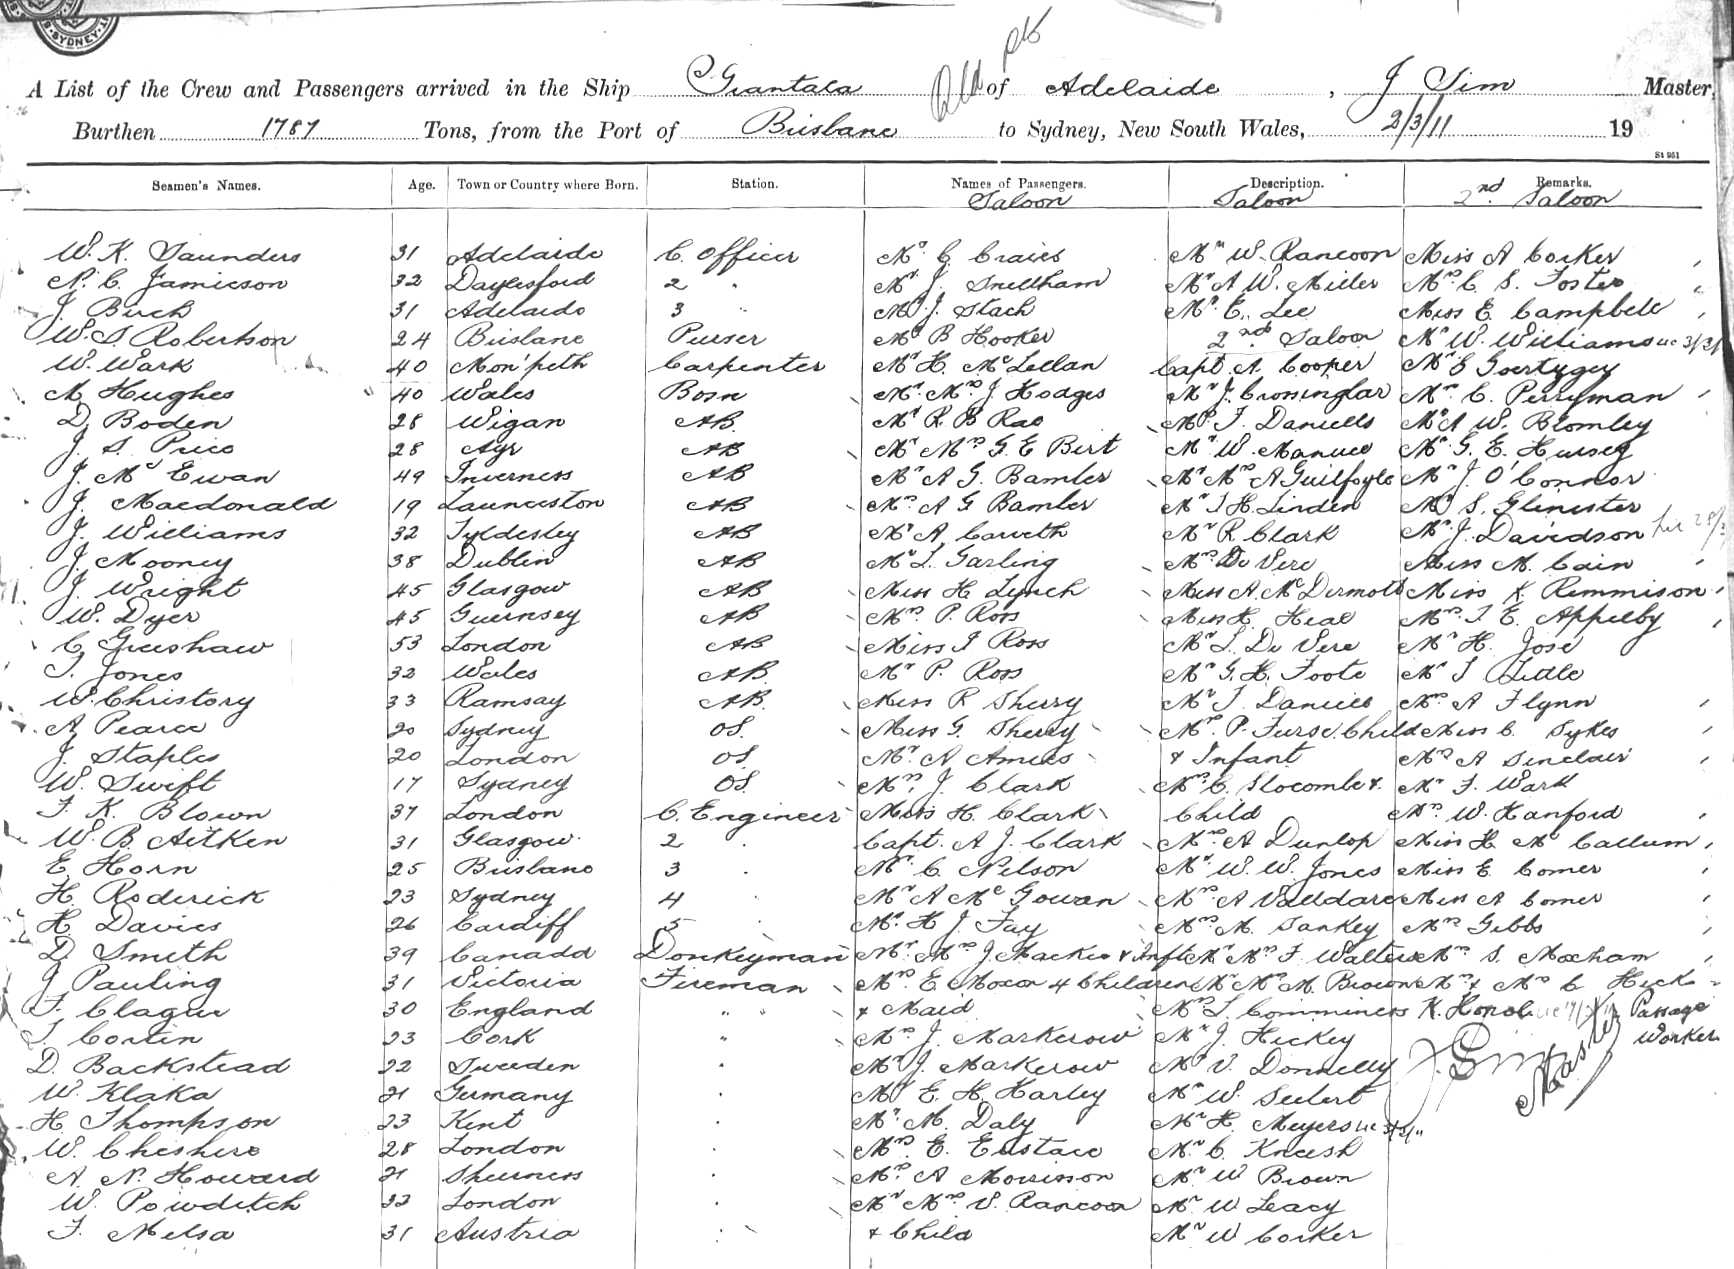 SYDNEY
A List of the Crew and Passengers arrived in the Ship Grantala of Adelaide, J Sim Master,
Burthen 1787 Tons, from the Port of Brisbane to Sydney, New South Wales, 2/3/11 19
St 951
Seamen's Names. Age. Town or Country where Born. Station. Names of Passengers. Description. Remarks.
Saloon Saloon 2nd Saloon
W. K. Saunders 31 Adelaide C. Officer Mr C Craies Mr W. Rancoon Miss A Corker
N. C. Jamieson 32 Daylesford 2 " Mr J. Snellham Mr A W. Miller Mrs C S. Foster
J. Birch 31 Adelaide 3 " Mr J. Stach Mr E. Lee Miss E Campbell
W. S. Robertson 24 Brisbane Purser Mr B Hooker 2nd Saloon Mr W. Williams
W. Wark 40 Mon'peth Carpenter Mr H. McLellan Capt. A Cooper Mr E Goertygey
M Hughes 40 Wales Bosn Mr Mrs J Hodges Mr J. Crossinglar Mr C. Perryman
D Boden 28 Wigan AB Mr R. B Rao Mr T. Daniells Mr A W. Blomley
J. S. Price 28 Ayr AB Mr Mrs G. E Birt Mr W. Manuel Mr G. E. Hursey
J. McEwan 49 Inverness AB Mr A G. Bamler Mr Mrs A Guilfoyle Mr J. O'Connor
J. Macdonald 19 Launceston AB Mrs A G Bamler Mr T H. Linden Mr S. Glinister
J. Williams 32 Tyldesley AB Mr A. Carveth Mr R. Clark Mr J. Davidson
J. Mooney 38 Dublin AB Mr L. Garling Mrs De Vere Miss M. Cain
J. Wright 45 Glasgow AB Miss H. Lynch Miss A. McDermott Miss K Remmison
W. Dyer 45 Guernsey AB Mrs P. Ross Miss H. Heal Mrs T. E. Appelby
C. Greeshaw 53 London AB Miss I Ross Mr L. De Vere Mr H. Jose
T. Jones 32 Wales AB Mr P. Ross Mr G. H. Foote Mr T Little
W. Christory 33 Ramsay AB Miss R Sherry Mr T. Daniels Mrs A Flynn
A Pearce 20 Sydney OS. Miss G. Sherry Mrs P. Furse. Child Miss C. Sykes
J. Staples 20 London OS Mr. A Amies & Infant Mrs A Sinclair
W. Swift 17 Sydney OS. Mrs. J. Clark Mrs C. Slocombe & Mr F. Wark
F. K. Blown 37 London C. Engineer Miss H. Clark Child Mrs W. Hanford
W. B. Aitken 31 Glasgow 2 " Capt. A J. Clark Mrs A Dunlop Miss H. McCallum
E Horn 25 Brisbane 3 " Mr C. Nelson Mr W. W. Jones Miss E. Comer
H. Roderick 23 Sydney 4 " Mr A McGowan Mrs A Valldare Miss A Comer
H Davies 26 Cardiff 5 " Mr. H J. Fay Mrs M. Sankey Mrs Gibbs
D. Smith 39 Canada Donkeyman Mr. Mrs J Mackie & Inft Mr Mrs F Walters Mrs S. Moxham
J Pauling 31 Victoria Fireman Mrs E Moxon 4 Children Mr Mrs M. Brown Mr & Mrs C Hicks
F. Clague 30 England " " & Maid Mrs L Comminers K. Honol Passage
T. Cortin 23 Cork " Mrs J. Markerow Mr J. Hickey Worker
D. Backstead 22 Sweden " Mr J. Markerow Mr V. Donnelly J. Sim Master
W. Klaka 21 Germany " Mr E. H. Harley Mr W. Seilert
H. Thompson 23 Kent " Mr. M. Daly Mr H. Meyers
W. Cheshire 28 London " Mrs. E. Eustace Mr C. Kneesh
A. N. Howard 21 Sheerness " Mrs. A Morrisson Mr W Brown
W. Powditch 22 London " Mr Mrs V. Rancoon Mr W Leacy
F. Melsa 31 Austria " & Child Mr W Corker